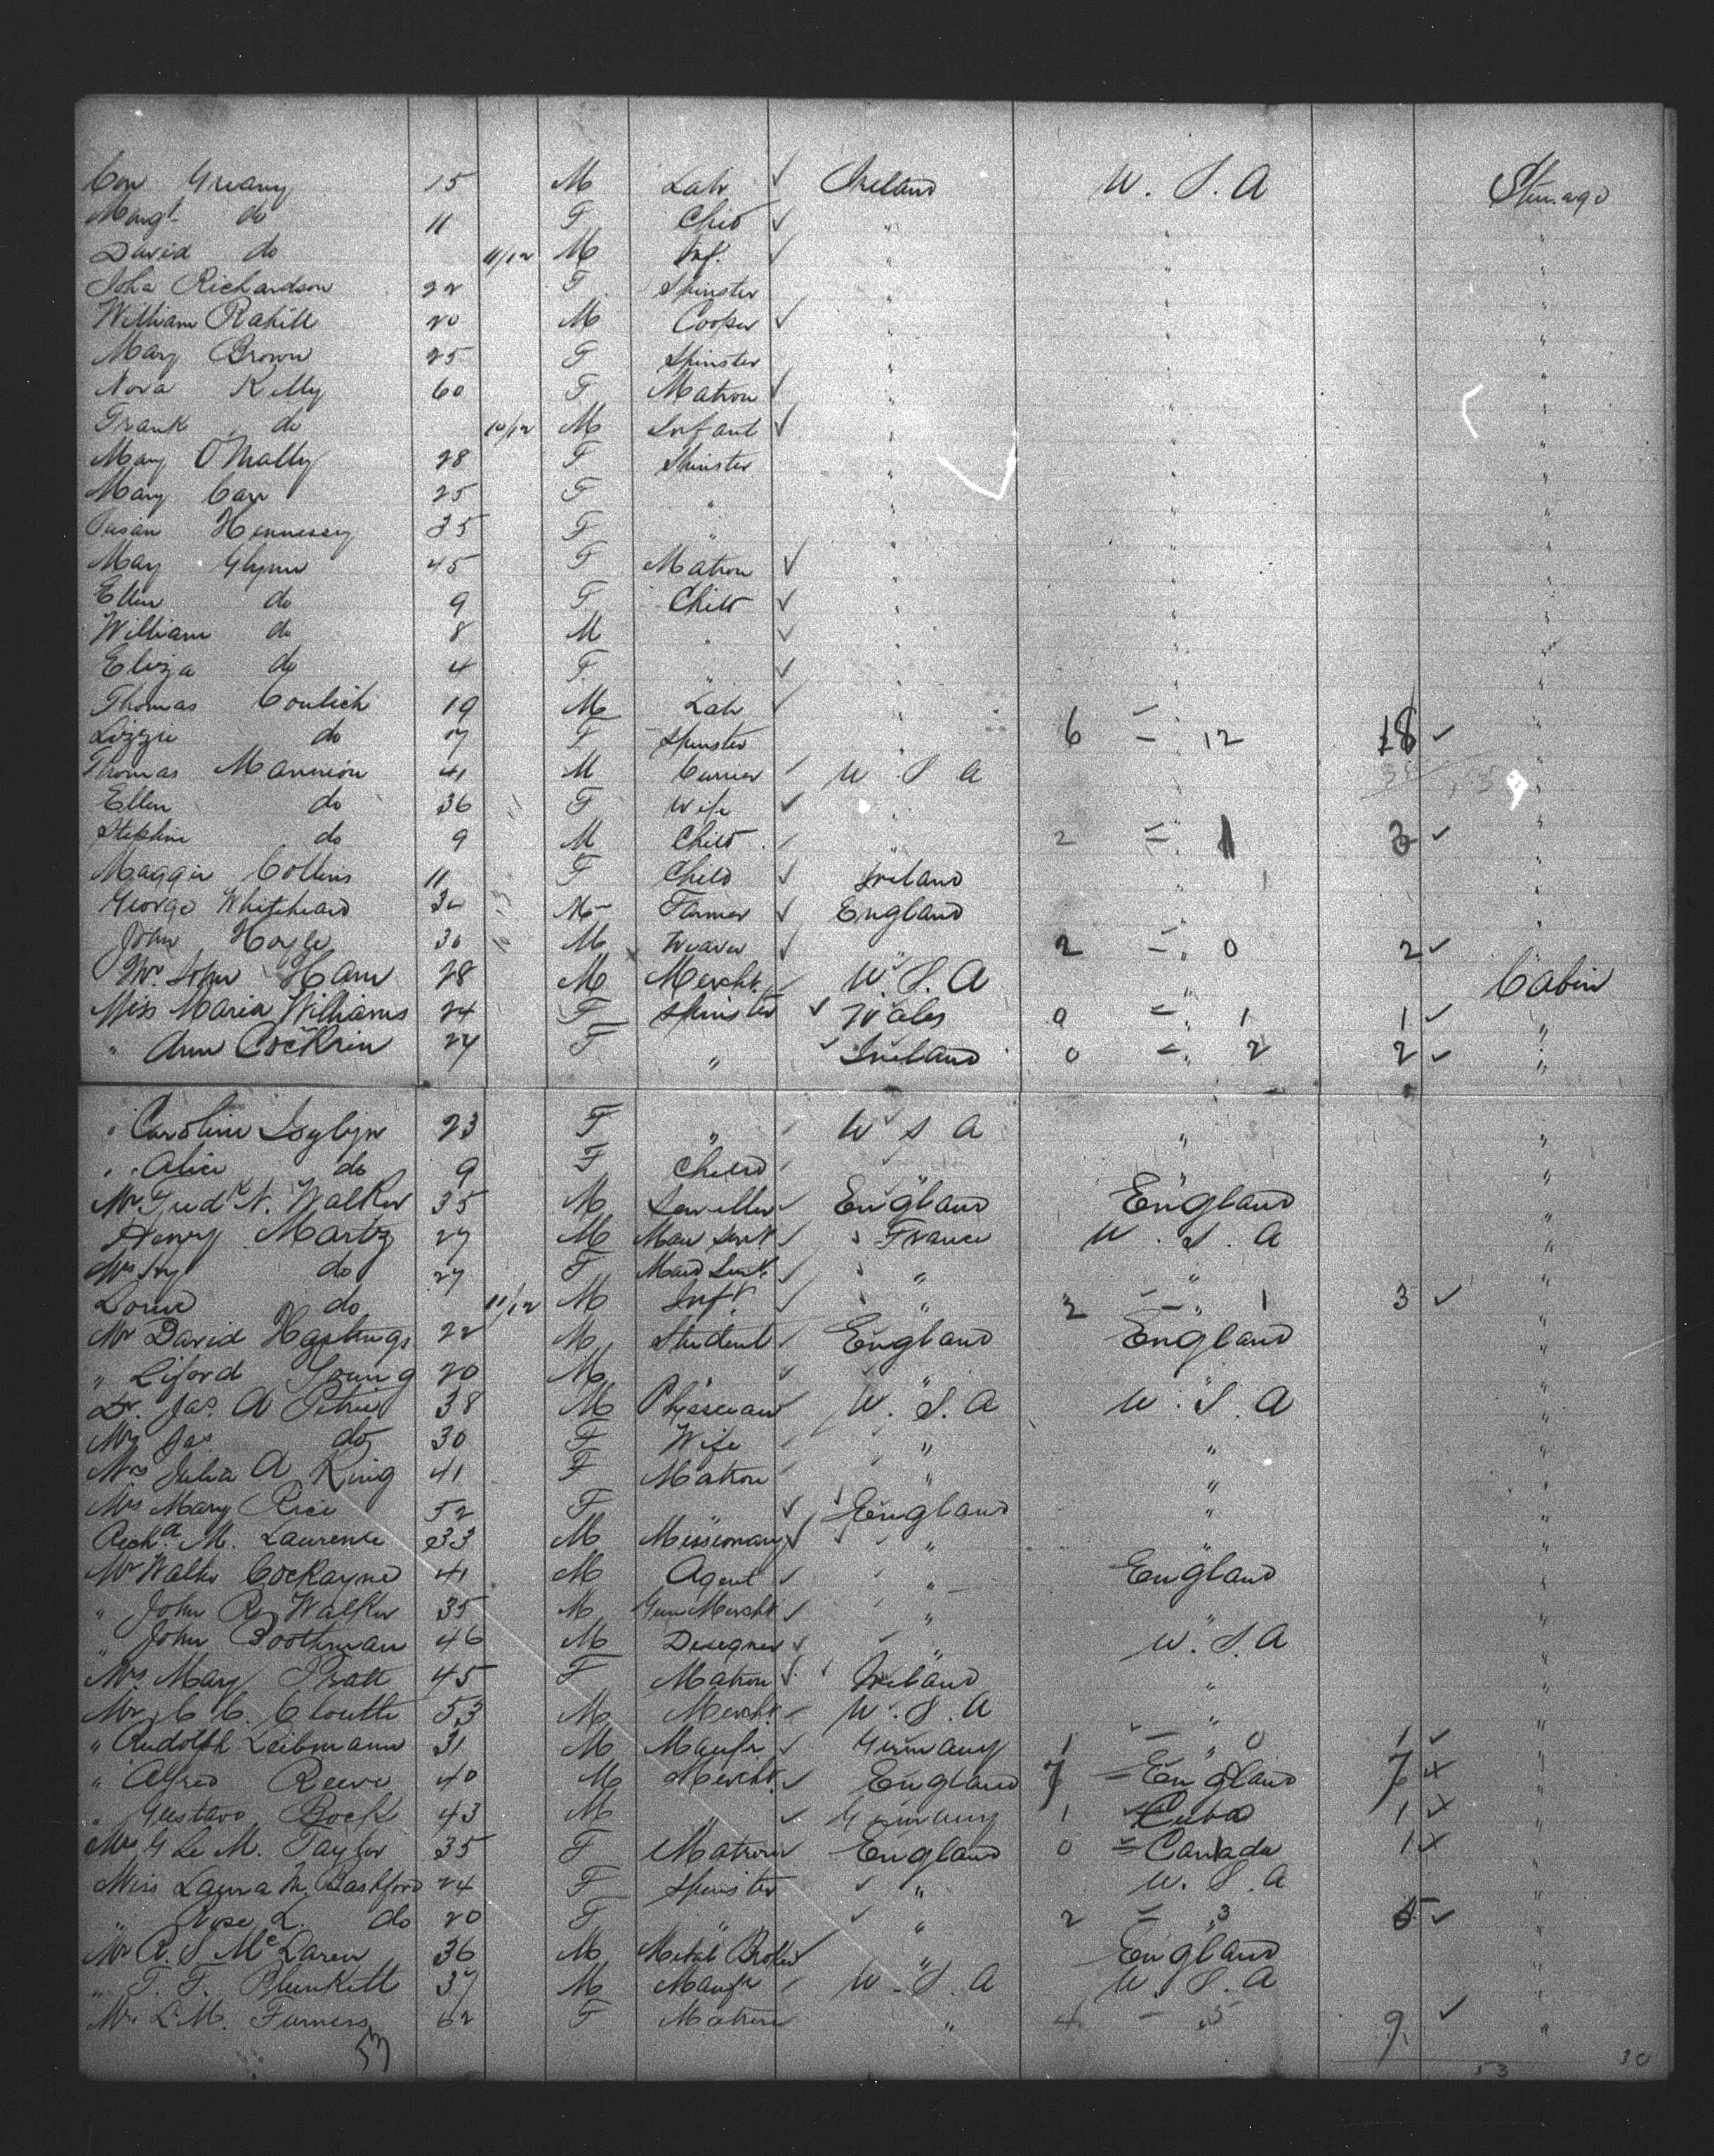 Con Greany 15 M Labr ✓ Ireland U. S. A Steerage
Margt do 11 F Child ✓ " " "
David do 11/12 M Inf. ✓ " " "
Joha Richardson 22 F Spinster " " "
William Rahill 20 M Cooper ✓ " " "
Mary Brown 25 F Spinster " " "
Nora Kelly 60 F Matron ✓ " " "
Frank do 10/12 M Infant ✓ " " "
Mary O'Mally 28 F Spinster " " "
Mary Carr 25 F " " " "
Susan Hennessy 35 F " " " "
May Glynn 45 F Matron ✓ " " "
Ellen do 9 F Child ✓ " " "
William do 8 M " ✓ " " "
Eliza do 4 F " ✓ " " "
Thomas 19 M Labr ✓ " " "
Lizzie do 17 F Spinster " 6 – 12 18 ✓ "
Thomas Mannion 41 M ✓ U S A " "
Ellen do 36 F Wife ✓ " " "
Stephen do 9 M Child ✓ " 2 – 1 3 ✓ "
Maggie Collins 11 F Child ✓ Ireland " "
George Whitehead 30 M Farmer ✓ England " "
John Hoyle 30 M Weaver ✓ " 2 – 0 2 ✓ "
Mr. John Ham 28 M Mercht. ✓ U. S. A " Cabin
Miss Maria Williams 24 F Spinster ✓ Wales 0 – 1 1 ✓ "
" Ann Cockrin 27 F " ✓ Ireland 0 – 2 2 ✓ "
" Caroline 23 F " ✓ U S A " "
" Alice do 9 F Child ✓ " " "
Mr Fredk N. Walker 35 M ✓ England England "
Henry Martz 27 M Man Servt ✓ France U. S. A "
Mrs Hy do 27 F Maid Servt. ✓ " " "
Louis do 11/12 M Inft ✓ " 2 – 1 3 ✓ "
Mr David Hastings 22 M Student ✓ England England "
" Liford Young 20 M " ✓ " " "
Dr. Jas. A Petrie 38 M Physician ✓ U. S. A U. S. A "
Mrs Jas do 30 F Wife ✓ " " "
Mrs Julia A King 41 F Matron ✓ " " "
Mrs Mary Rice 52 F " ✓ England " "
Richd. M. Laurence 33 M Missionary ✓ " " "
Mr Walter Cockayne 41 M Agent ✓ " England "
" John R. Walker 35 M Mercht ✓ " " "
" John Boothman 46 M Designer ✓ " U. S. A "
Mrs Mary Pratt 45 F Matron ✓ Ireland " "
Mr C. C. Cloutte 53 M Mercht. ✓ U. S. A " "
" Rudolph Leibmann 31 M Manfr. ✓ Germany 1 – 0 1 ✓ "
" Alfred Reeve 40 M Mercht. ✓ England 7 – England 7 "
" Gustavo Bock 43 M " ✓ Germany 1 Cuba 1 "
Mrs G Le M. Taylor 35 F Matron ✓ England 0 – Canada 1 "
Miss Laura M. Bashford 24 F Spinster ✓ " U. S. A "
" Rose L. do 20 F " ✓ " 2 – 3 5 ✓ "
Mr R. S. McLaren 36 M Metal Broker ✓ " England "
" T. F. Plunkett 37 M Manfr ✓ U. S. A U. S. A "
Mrs L. M. Furness 62 F Matron " 4 – 5 9 ✓ "
53 53 30